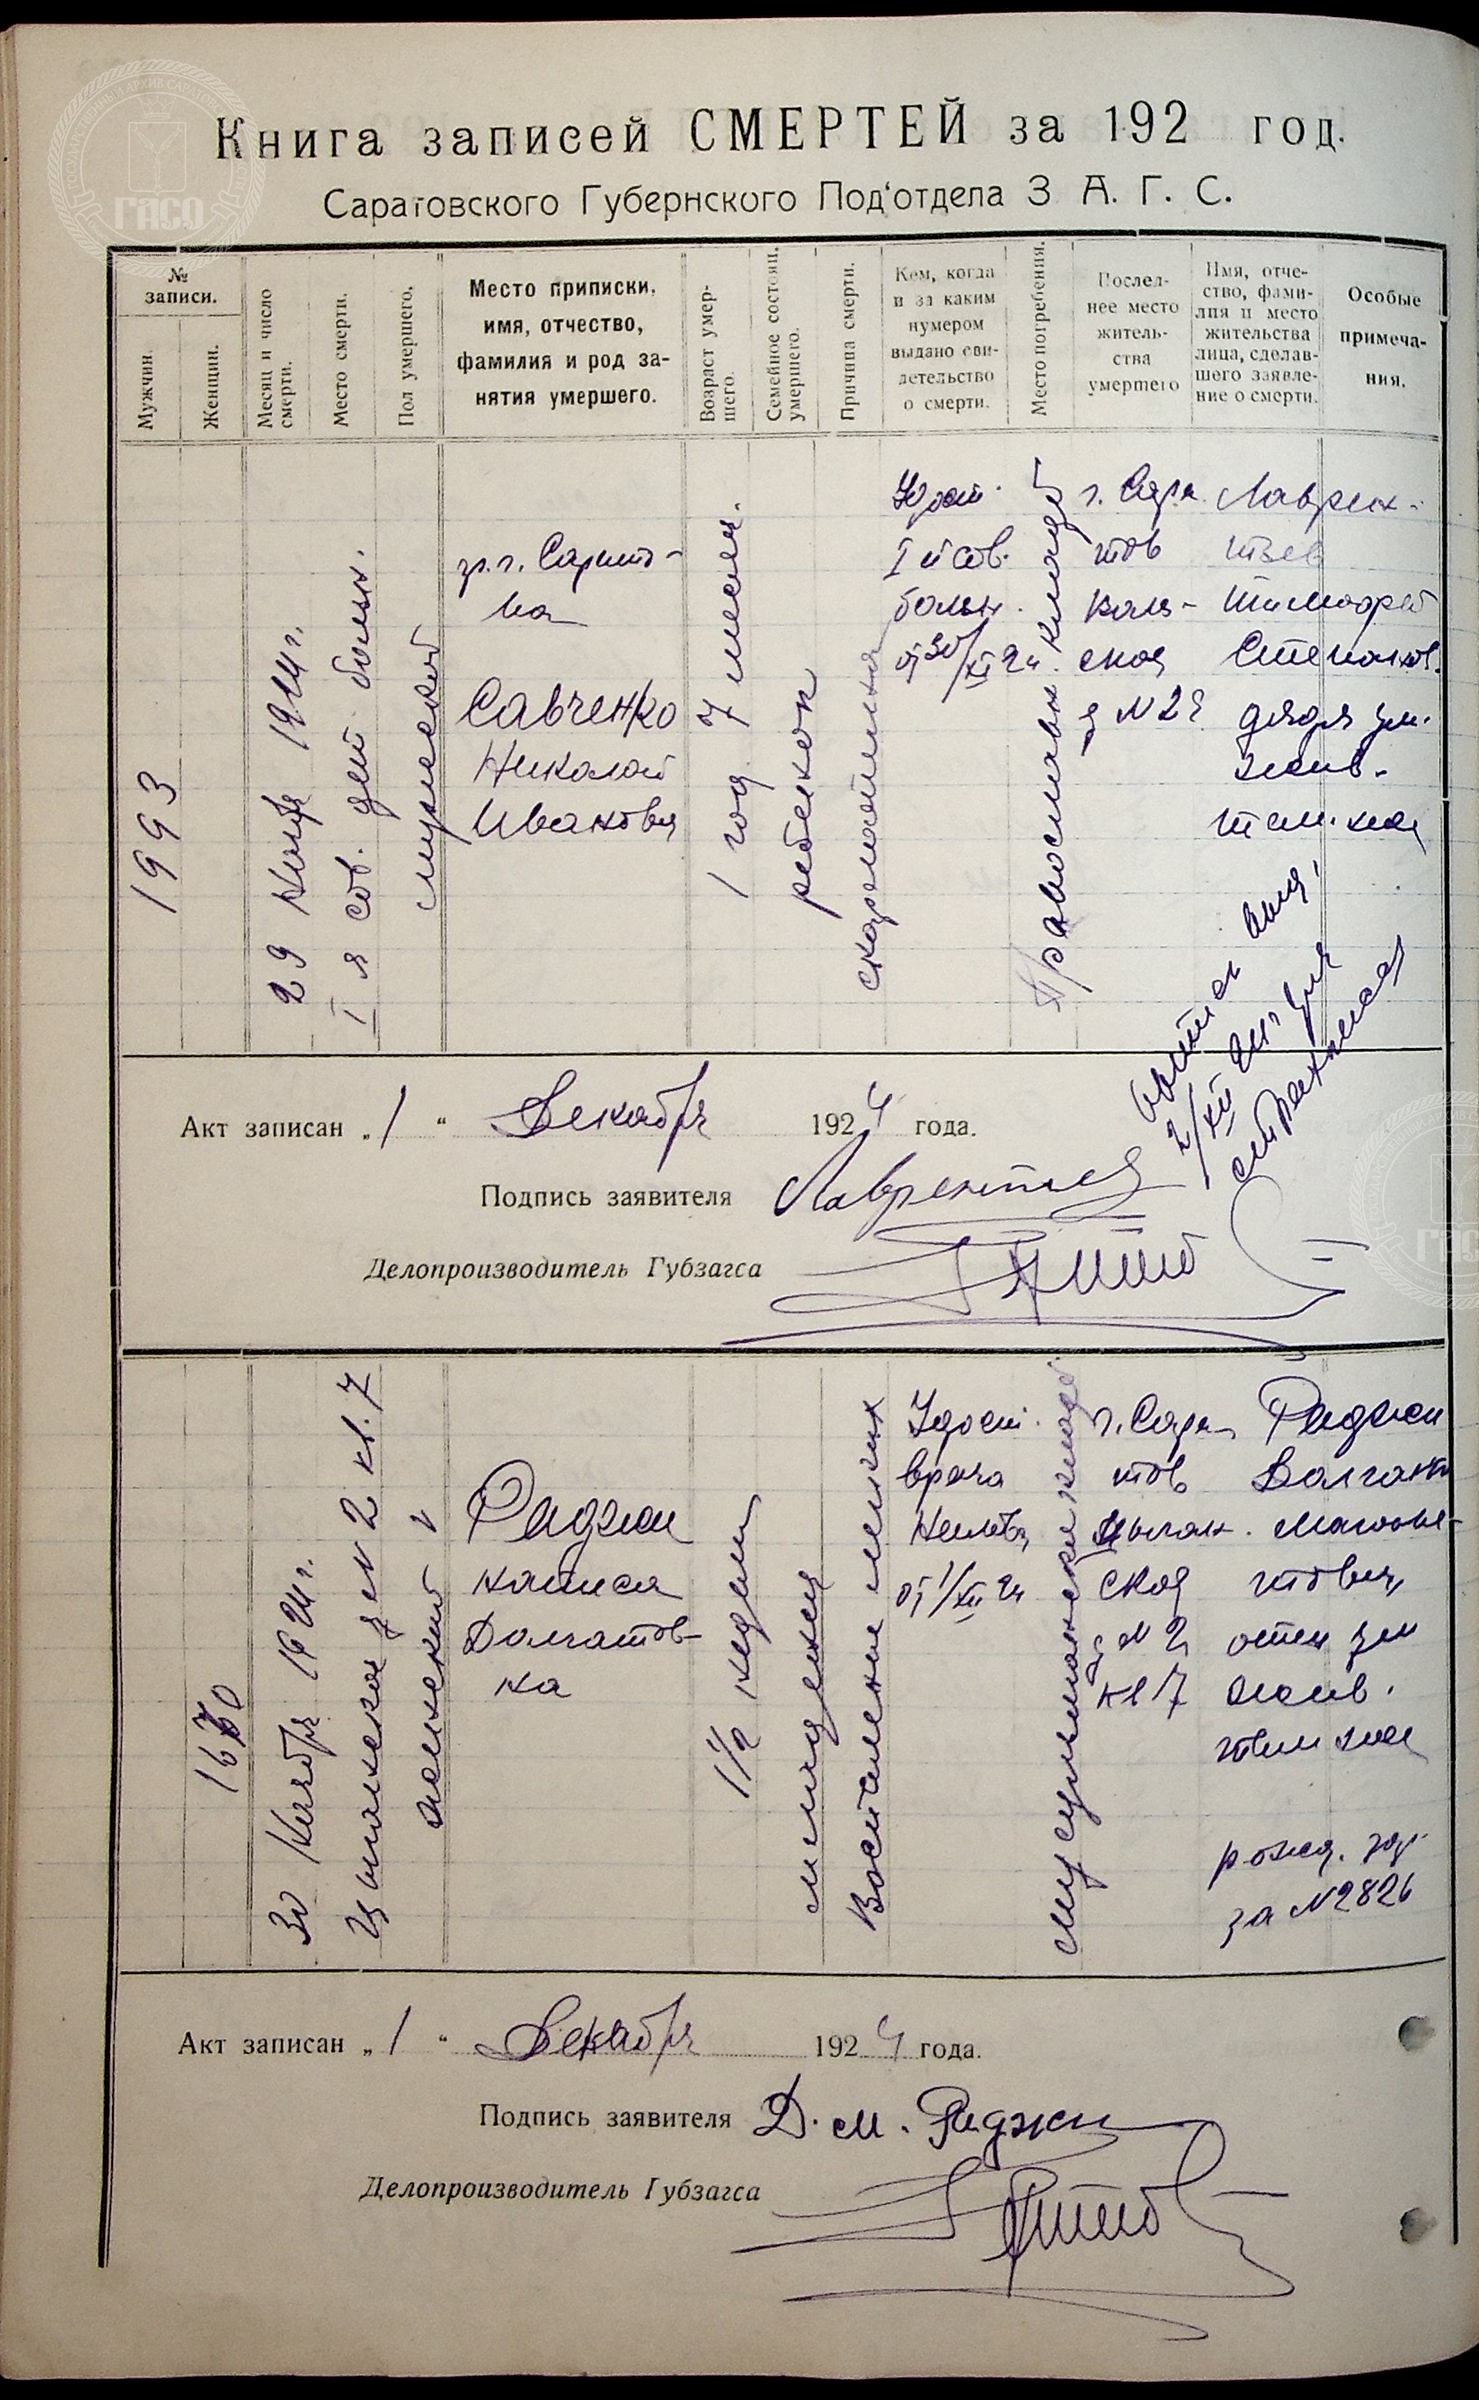 Книга записей СМЕРТЕЙ за 192 год.
Саратовского Губернского Под'отдела З А. Г. С.
№ записи.
Мужчин.
Женщин.
Месяц и число смерти.
Место смерти.
Пол умершего.
Место приписки, имя, отчество, фамилия и род занятия умершего.
Возраст умершего.
Семейное состоян. умершего.
Причина смерти.
Кем, когда и за каким нумером выдано свидетельство о смерти.
Место погребения.
Последнее место жительства умершего
Имя, отчество, фамилия и место жительства лица, сделавшего заявление о смерти.
Особые примечания.
1993
29 Нояб 1924 г.
I я сов. дет. больн.
мужской
гр. г.
Савченко
Николай
Иванович
1 год 7 месяц.
ребенок
скарлатина
Удост.
I й сов.
больн.
от 30/XI 24
Православн кладб
г. Сара
тов
ская
д N 2
Лаврен-
тьев
Тимофей
Степанов.
дядя ум.
жив.
там же
2/XII 24 г
Акт записан „ 1 “ Декабря 1924 года.
Подпись заявителя Лаврентьев
Делопроизводитель Губзагса
1670
30 Ноября 1924 г.
Цыганская д N 2 кв. 7
женский
Раджи
1 1/2 недели
младенец
Воспаление легких
Удост.
врача
от 1/XII 24
Мусульманское кладб
г. Сара
тов
Цыган.
ская
д N 2
кв 7
Раджи
отец ум
жив.
там же
рожд. зар
за N 2826
Акт записан „ 1 “ Декабря 1924 года.
Подпись заявителя Д. М. Раджи
Делопроизводитель Губзагса
ГАСО